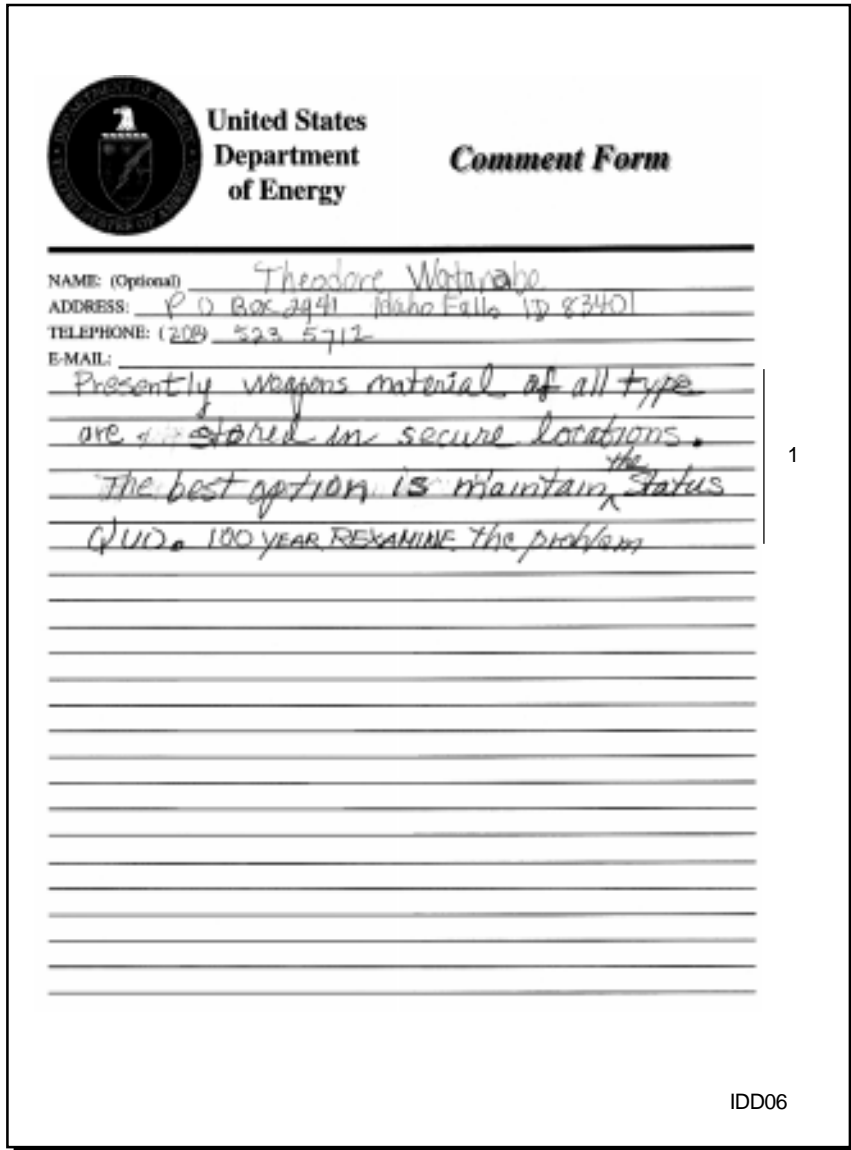 United States
Department
of Energy
Comment Form
NAME: (Optional) Theodore Watanabe
ADDRESS: P O Box 2941 Idaho Falls ID 83401
TELEPHONE: (208) 523 5712
E-MAIL:
Presently weapons material of all type
are stored in secure locations.
The best option is maintain the status
QUO. 100 YEAR REXAMINE the problem
1
IDD06